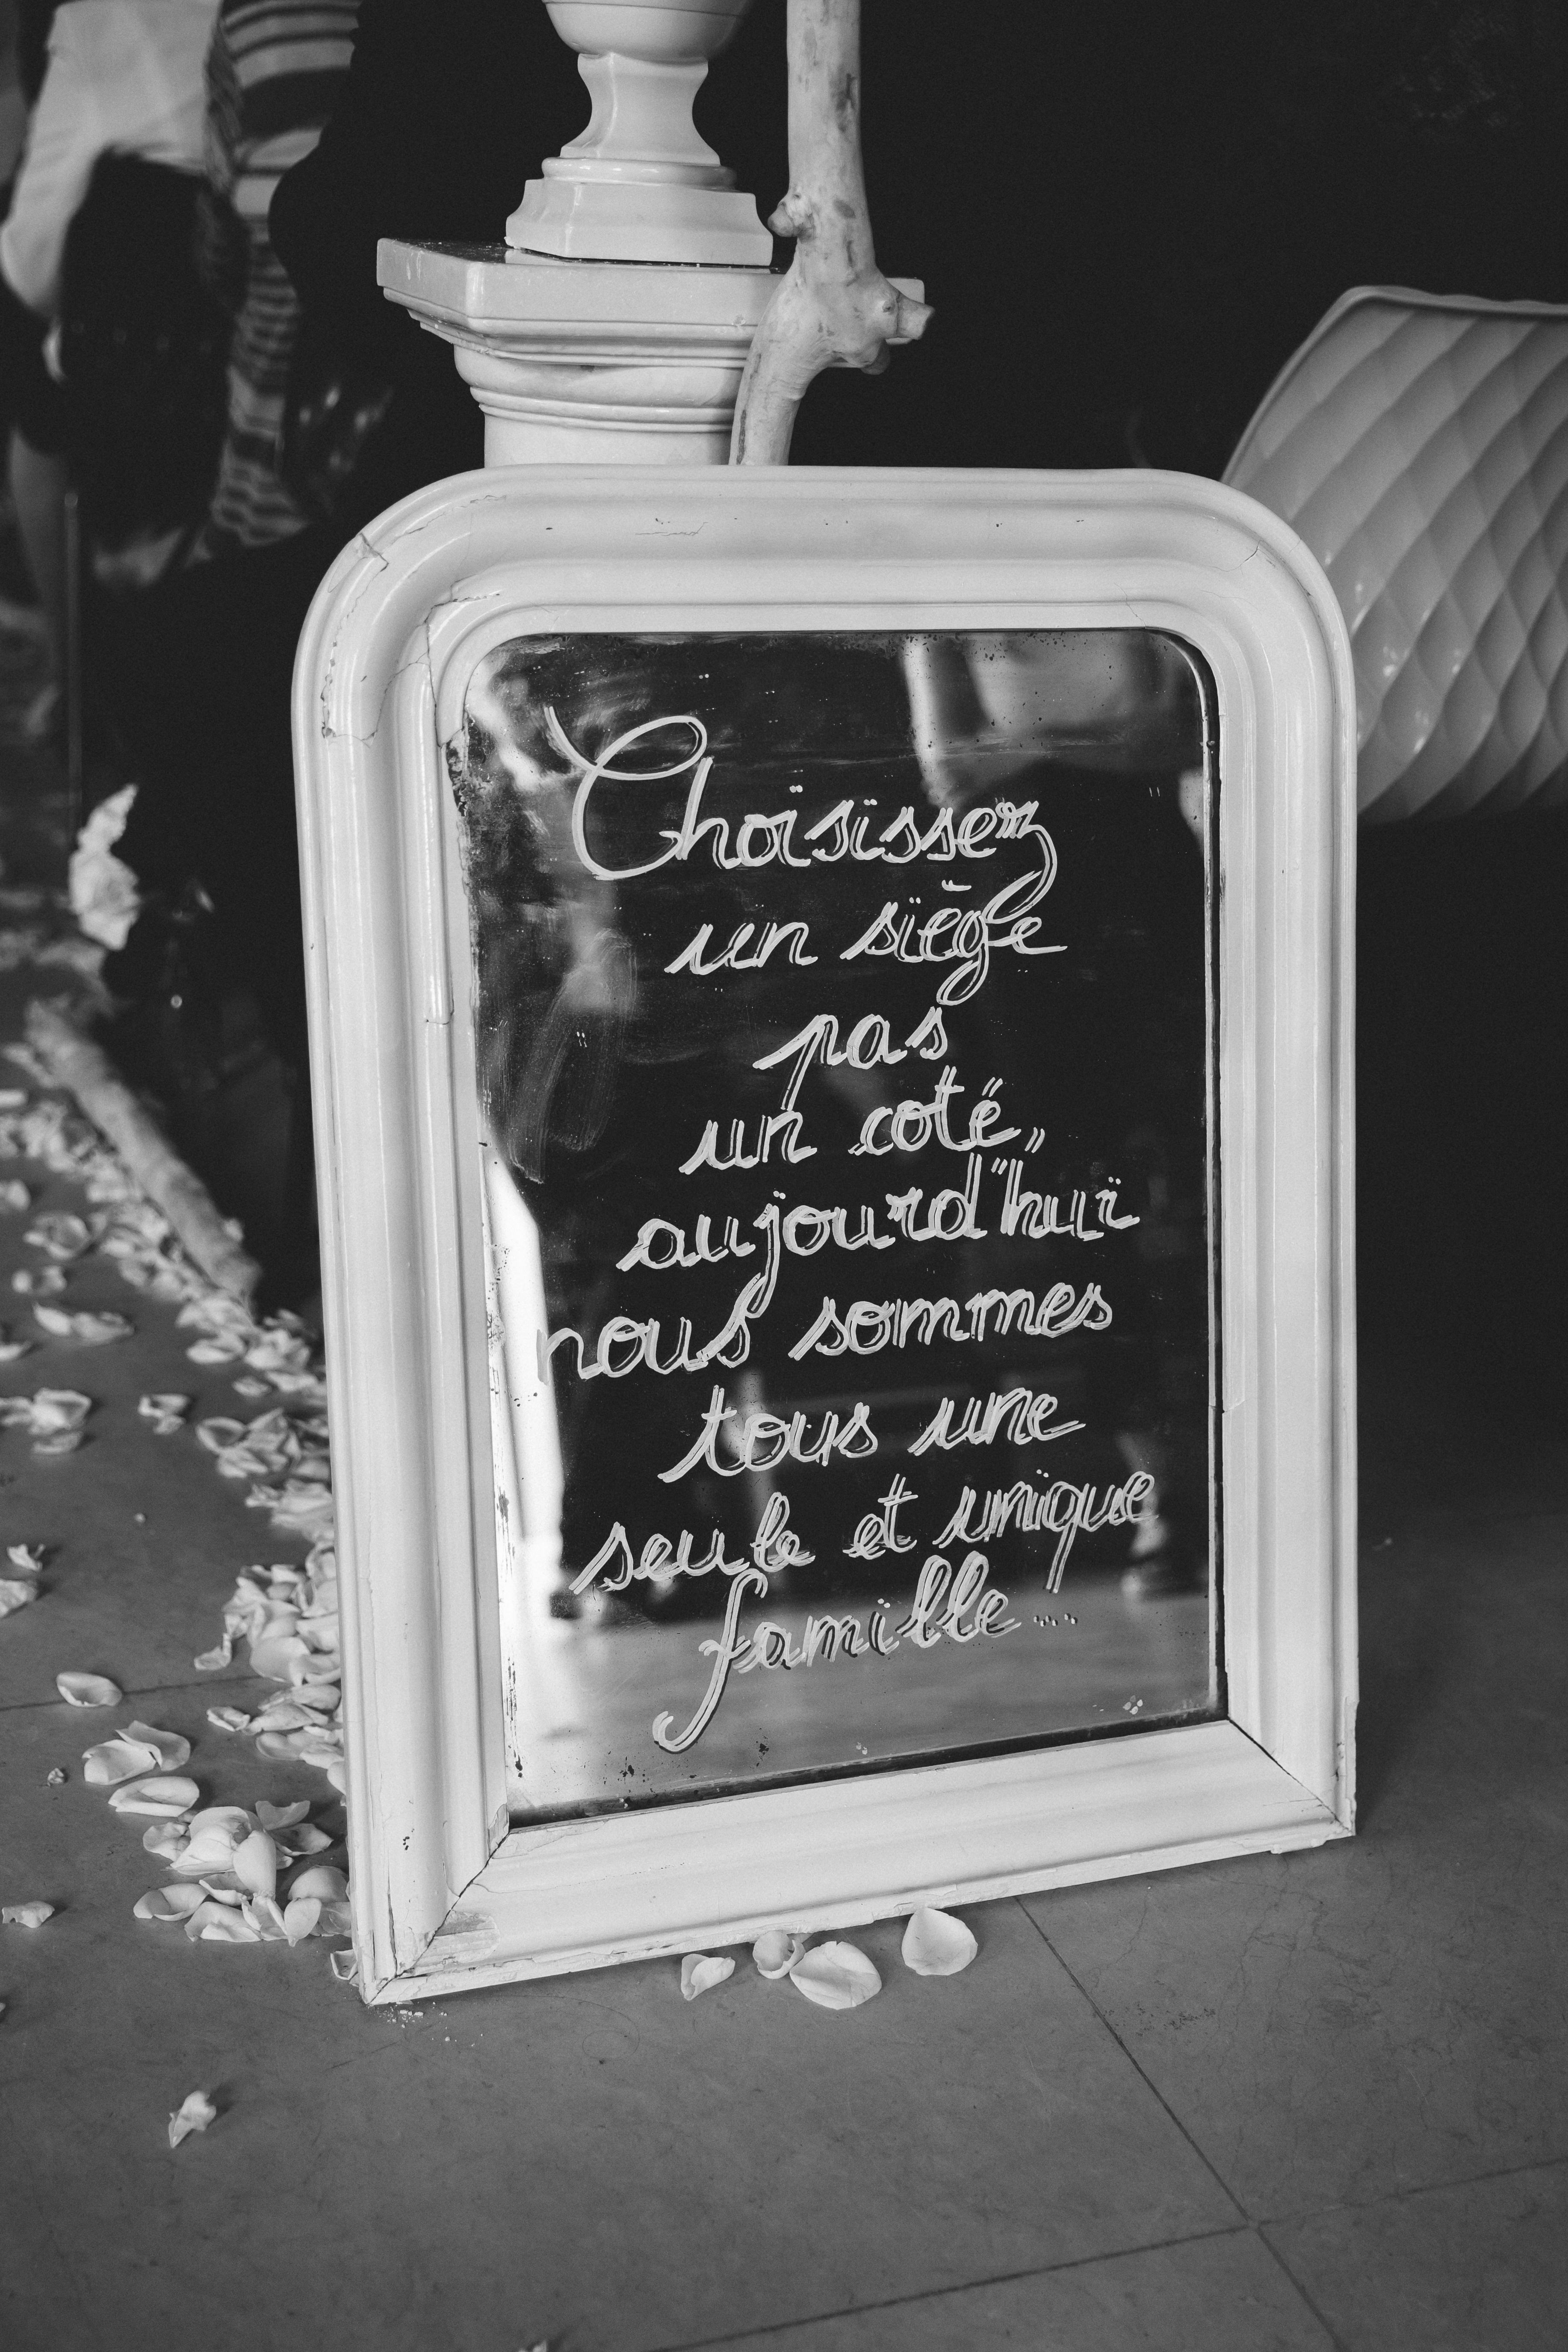 Choisissez
un siège
pas
un coté,
aujourd'hui
nous sommes
tous une
seule et unique
famille...